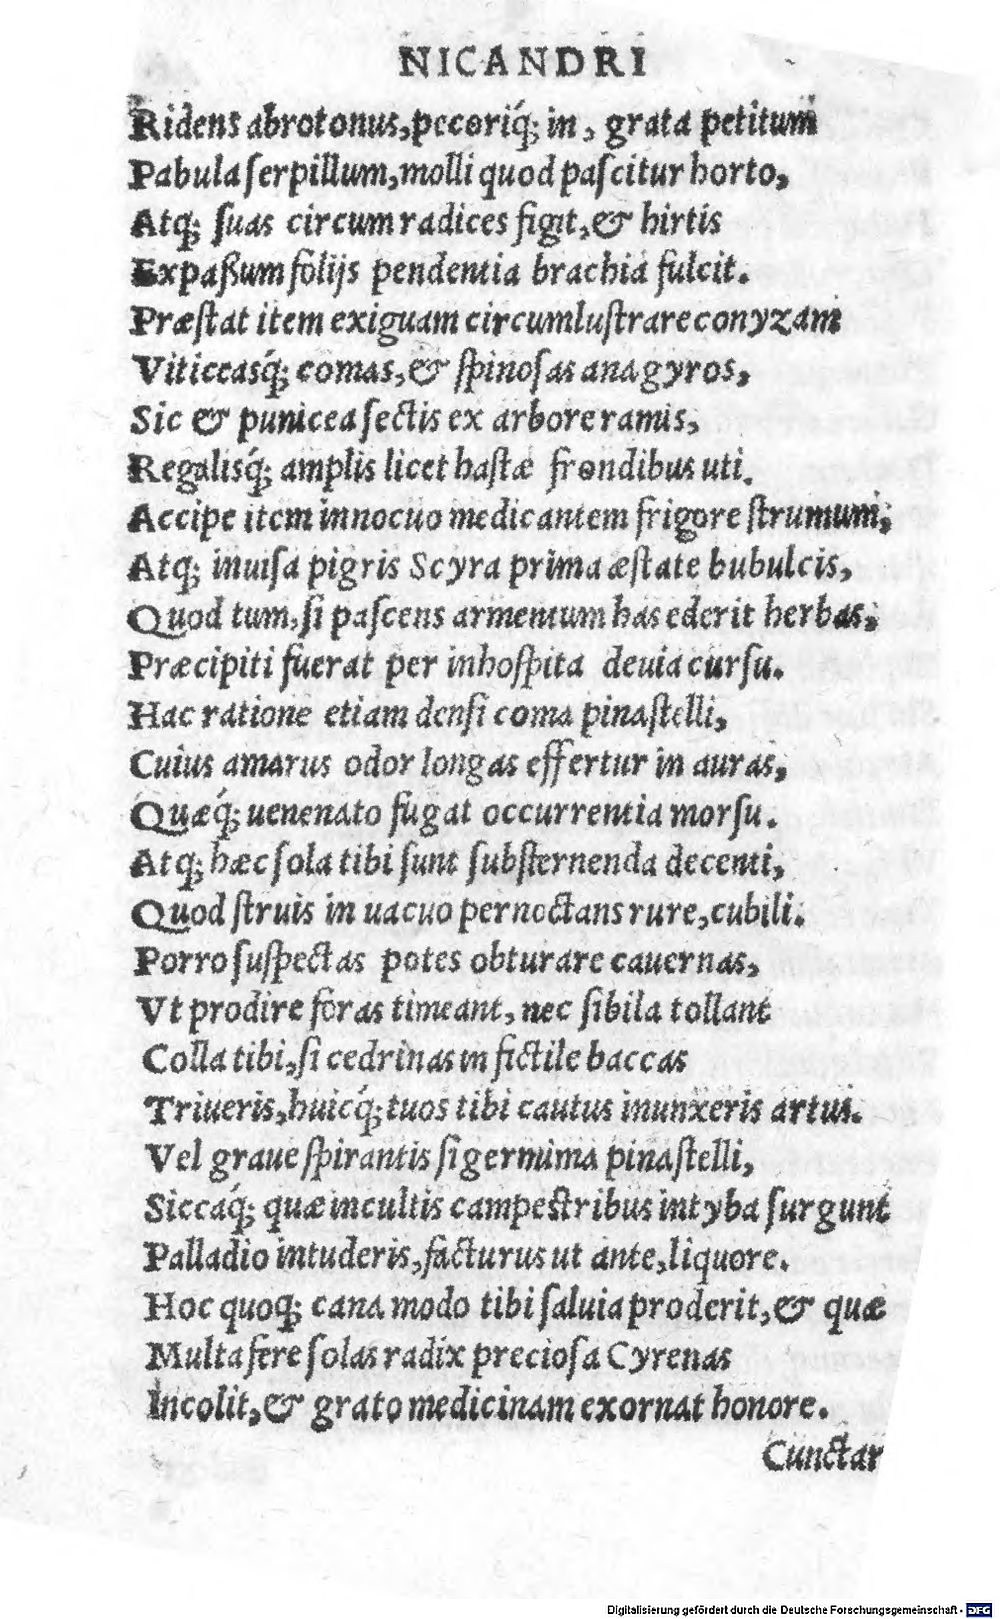 NICANDRI
Ridens abrotonus, pecoriq́; in, grata petitum
Pabula ſerpillum, molli quod paſcitur horto,
Atq; ſuas circum radices figit, & hirtis
Expaßum folijs pendentia brachia fulcit.
Præſtat item exiguam circumluſtrare conyzam
Viticeasq́; comas, & ſpinoſas anagyros,
Sic & punicea ſectis ex arbore ramis,
Regalisq́; amplis licet haſtæ frondibus uti.
Accipe item innocuo medicantem frigore ſtrumum,
Atq; inuiſa pigris Scyra prima æſtate bubulcis,
Quod tum, ſi paſcens armentum has ederit herbas,
Præcipiti fuerat per inhoſpita deuia curſu.
Hac ratione etiam denſi coma pinaſtelli,
Cuius amarus odor longas effertur in auras,
Quæq́; uenenato fugat occurrentia morſu.
Atq; hæc ſola tibi ſunt ſubſternenda decenti,
Quod ſtruis in uacuo pernoctans rure, cubili.
Porro ſuſpectas potes obturare cauernas,
Vt prodire foras timeant, nec ſibila tollant
Colla tibi, ſi cedrinas in fictile baccas
Triueris, huicq́; tuos tibi cautus inunxeris artus.
Vel graue ſpirantis ſi germima pinaſtelli,
Siccaq́; quæ incultis campeſtribus intyba ſurgunt
Palladio intuderis, facturus ut ante, liquore.
Hoc quoq; cana modo tibi ſaluia proderit, & quæ
Multa fere ſolas radix precioſa Cyrenas
Incolit, & grato medicinam exornat honore.
Cunctar
Digitalisierung gefördert durch die Deutsche Forschungsgemeinschaft - DFG